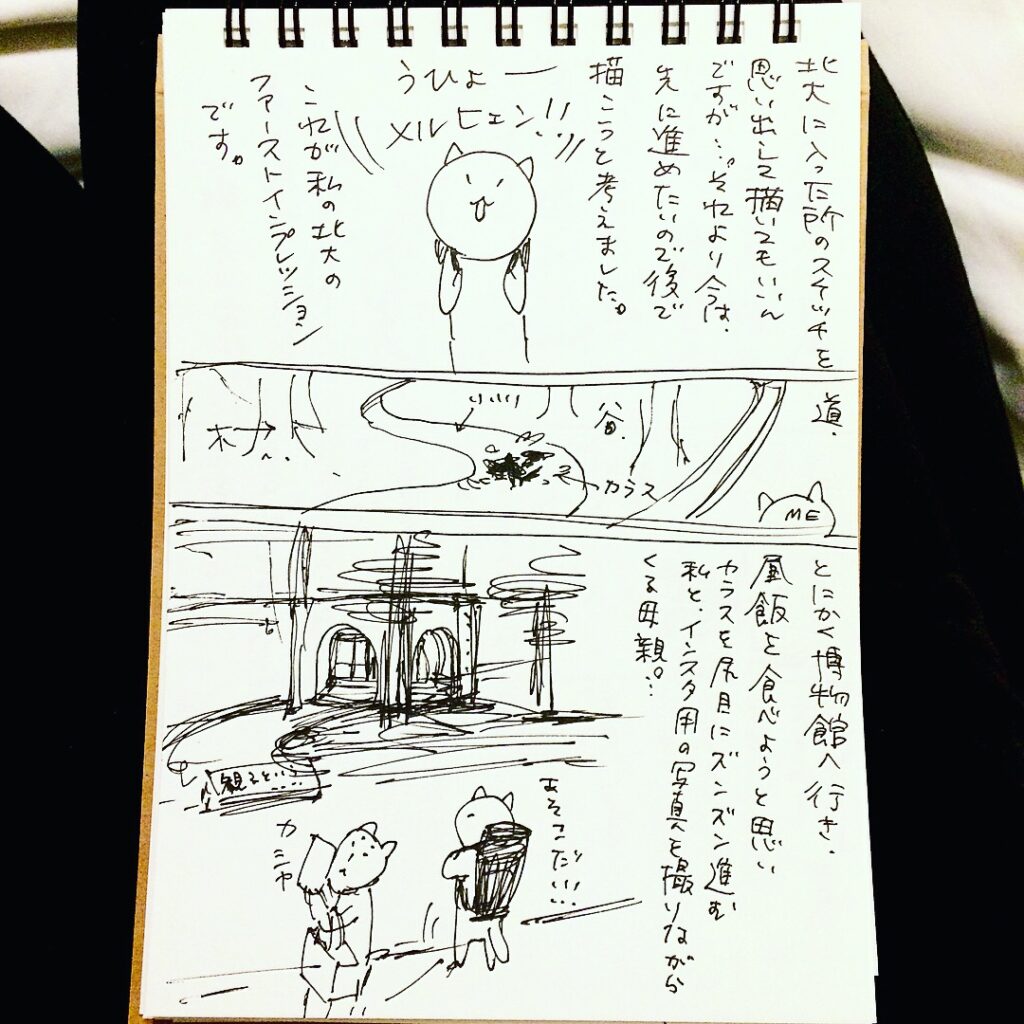 北大に入った所のスケッチを
思い出して描いてもいいん
ですが…。それより今は、
先に進めたいので後で
描こうと考えました。
うひょー
メルヒェン!!
これが私の北大の
ファーストインプレッション
です。
道。
谷。
カラス
木→
ME
とにかく博物館へ行き、
昼飯を食べようと思い
カラスを尻目にズンズン進む
私と、インスタ用の写真を撮りながら
くる母親。…
あそこだ!!!
カシャ